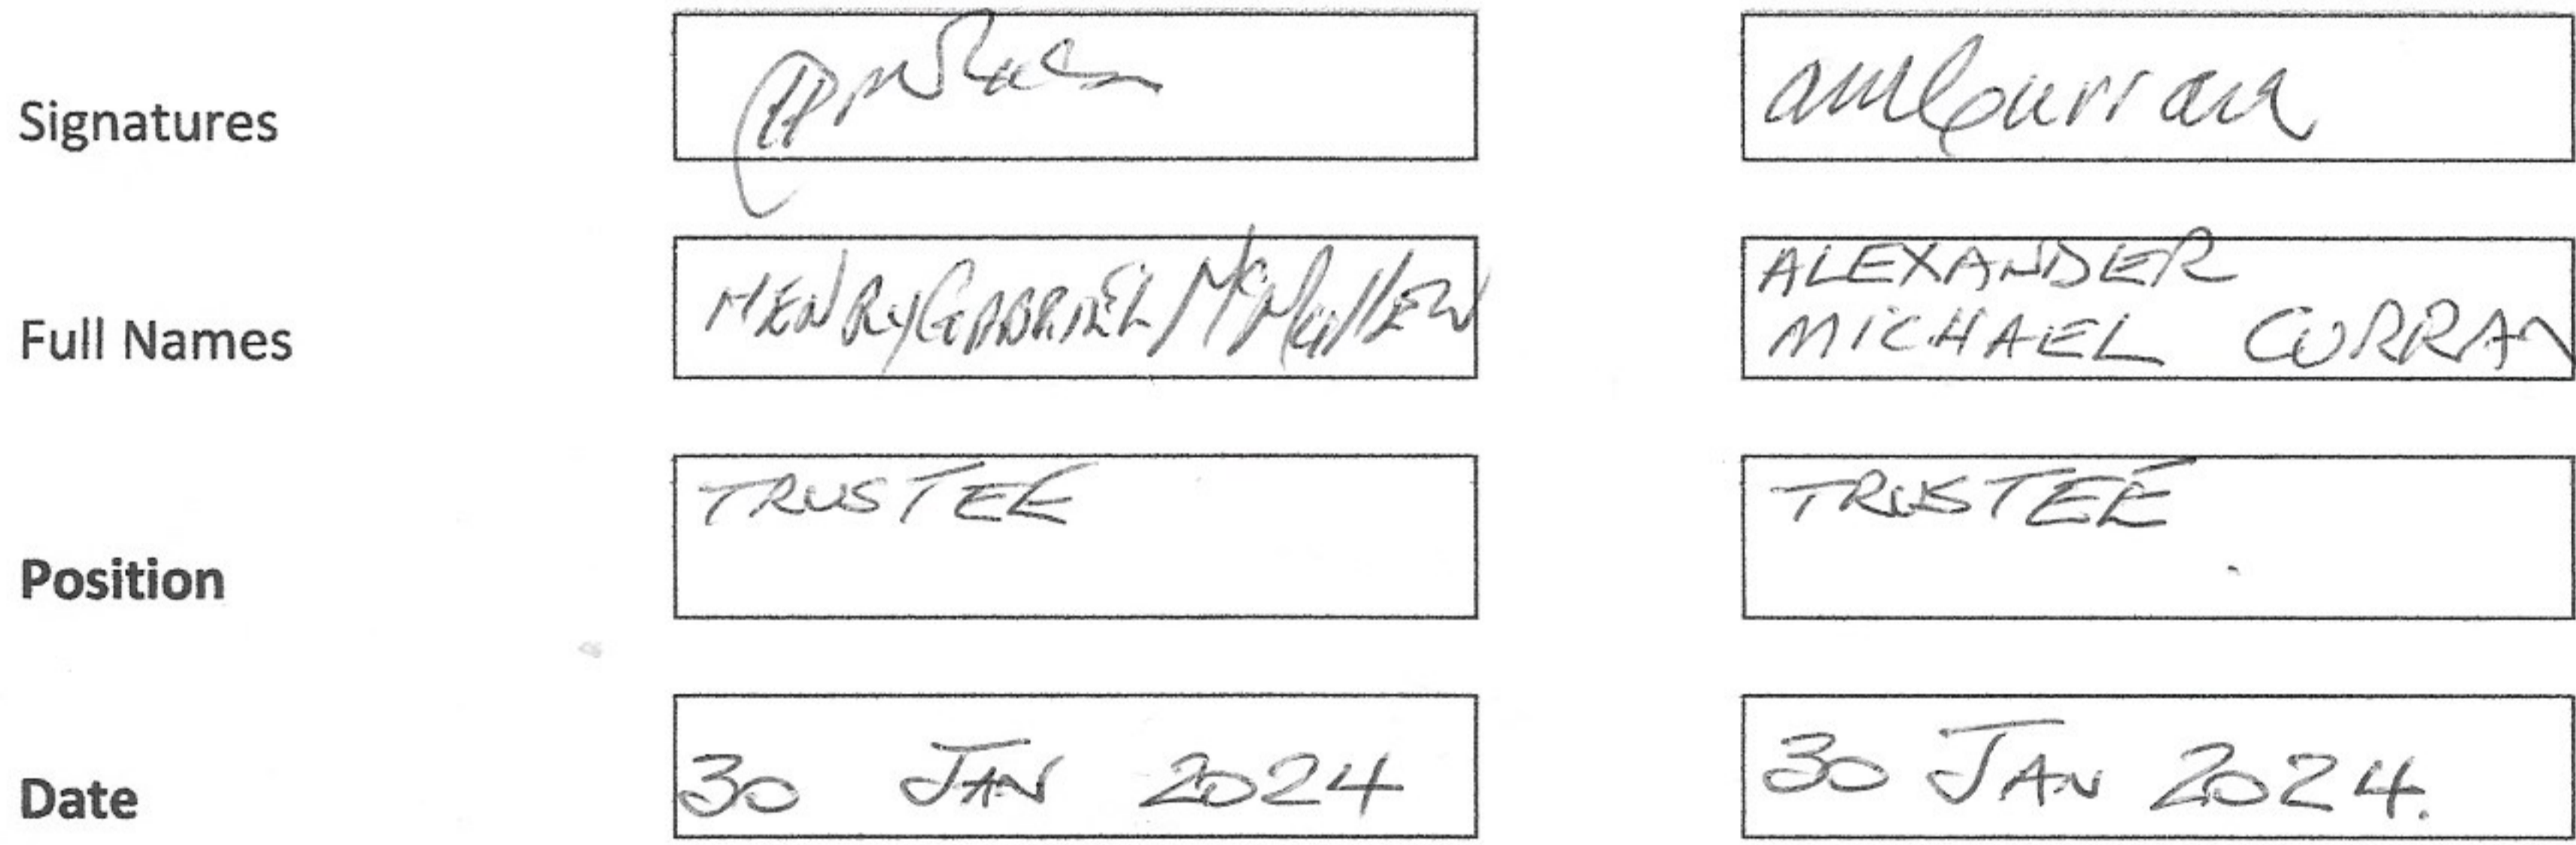 Signatures
amcurran
Full Names
HENRY GABRIEL McMullEN
ALEXANDER
MICHAEL CURRAN
Position
TRUSTEE
TRUSTEE
Date
30 JAN 2024
30 JAN 2024.